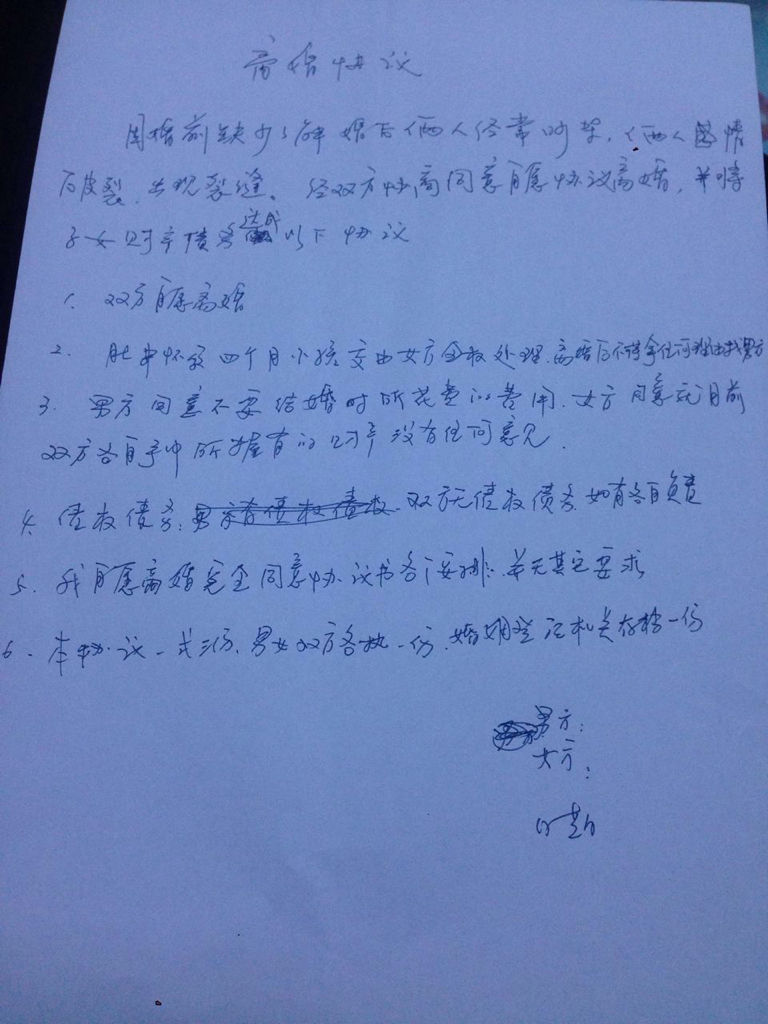 离婚协议
因婚前缺少了解婚后俩人经常吵架，俩人感情
已破裂，出现裂缝。经双方协商同意自愿协议离婚，并将
子女财产债务达成以下协议
1. 双方自愿离婚
2. 肚中怀孩四个月小孩交由女方全权处理，离婚后不得拿任何理由找男方
3. 男方同意不要结婚时所花费的费用，女方同意就目前
双方各自手中所握有的财产没有任何意见.
4. 债权债务：双方无债权债务，如有各自负责
5. 我自愿离婚完全同意协议书各项安排，并无其它要求
6. 本协议一式三份，男女双方各执一份，婚姻登记机关存档一份
男方：
女方：
日期